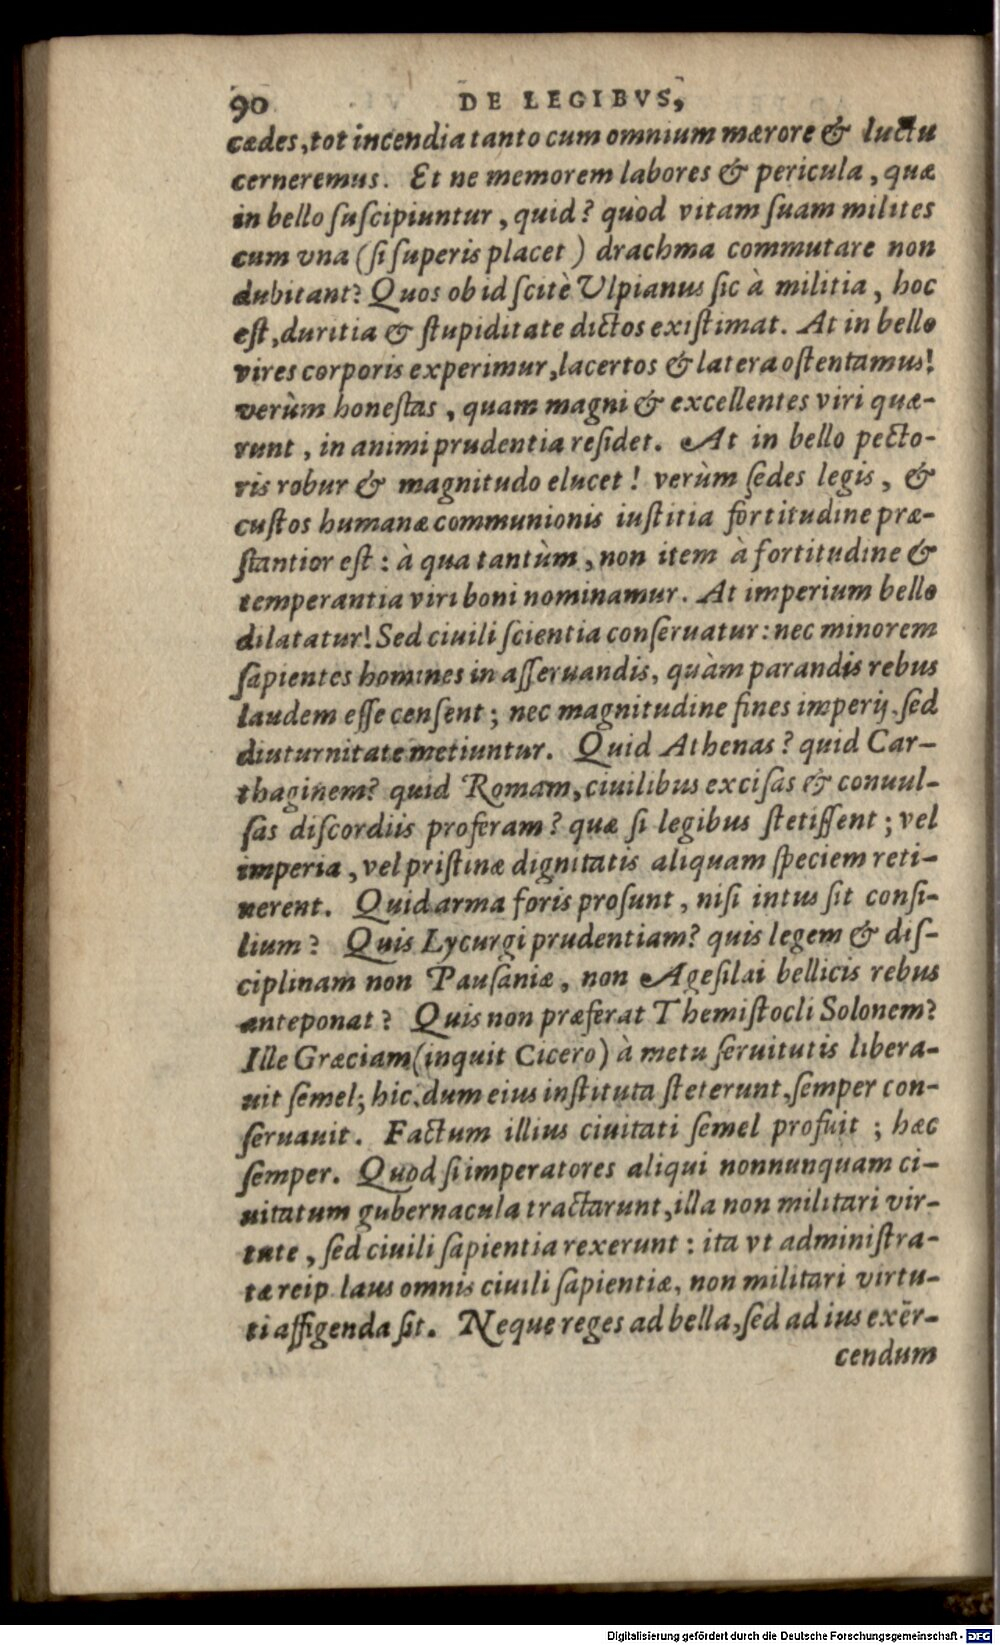 90 DE LEGIBVS,
cædes, tot incendia tanto cum omnium mærore & luctu
cerneremus. Et ne memorem labores & pericula, quæ
in bello ſuſcipiuntur, quid? quòd vitam ſuam milites
cum vna (ſi ſuperis placet) drachma commutare non
dubitant? Quos ob id ſcitè Ulpianus ſic à militia, hoc
eſt, duritia & ſtupiditate dictos exiſtimat. At in bello
vires corporis experimur, lacertos & latera oſtentamus!
verùm honeſtas, quam magni & excellentes viri quæ-
runt, in animi prudentia reſidet. At in bello pecto-
ris robur & magnitudo elucet! verùm ſedes legis, &
cuſtos humanæ communionis iuſtitia fortitudine præ-
ſtantior eſt: à qua tantùm, non item à fortitudine &
temperantia viri boni nominamur. At imperium bello
dilatatur! Sed ciuili ſcientia conſeruatur: nec minorem
ſapientes homines in aſſeruandis, quàm parandis rebus
laudem eſſe cenſent; nec magnitudine fines imperij, ſed
diuturnitate metiuntur. Quid Athenas? quid Car-
thaginem? quid Romam, ciuilibus exciſas & conuul-
ſas diſcordiis proferam? quæ ſi legibus ſtetiſſent; vel
imperia, vel priſtinæ dignitatis aliquam ſpeciem reti-
nerent. Quid arma foris proſunt, niſi intus ſit conſi-
lium? Quis Lycurgi prudentiam? quis legem & diſ-
ciplinam non Pauſaniæ, non Ageſilai bellicis rebus
anteponat? Quis non præferat Themiſtocli Solonem?
Ille Græciam (inquit Cicero) à metu ſeruitutis libera-
uit ſemel; hic, dum eius inſtituta ſteterunt, ſemper con-
ſeruauit. Factum illius ciuitati ſemel profuit; hæc
ſemper. Quod ſi imperatores aliqui nonnunquam ci-
uitatum gubernacula tractarunt, illa non militari vir-
tute, ſed ciuili ſapientia rexerunt: ita vt adminiſtra-
tæ reip. laus omnis ciuili ſapientiæ, non militari virtu-
ti affigenda ſit. Neque reges ad bella, ſed ad ius exer-
cendum
Digitalisierung gefördert durch die Deutsche Forschungsgemeinschaft - DFG